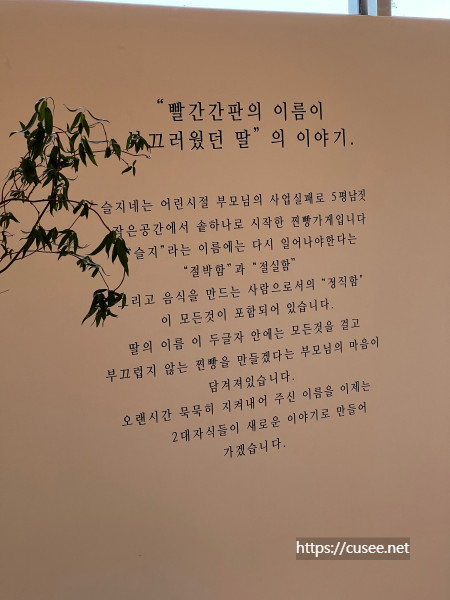 “빨간간판의 이름이
끄러웠던 딸” 의 이야기.
슬지네는 어린시절 부모님의 사업실패로 5평남짓
작은공간에서 솥하나로 시작한 찐빵가게입니다
“슬지”라는 이름에는 다시 일어나야한다는
“절박함”과 “절실함”
그리고 음식을 만드는 사람으로서의 “정직함”
이 모든것이 포함되어 있습니다.
딸의 이름 이 두글자 안에는 모든것을 걸고
부끄럽지 않는 찐빵을 만들겠다는 부모님의 마음이
담겨져있습니다.
오랜시간 묵묵히 지켜내어 주신 이름을 이제는
2대자식들이 새로운 이야기로 만들어
가겠습니다.
https://cusee.net